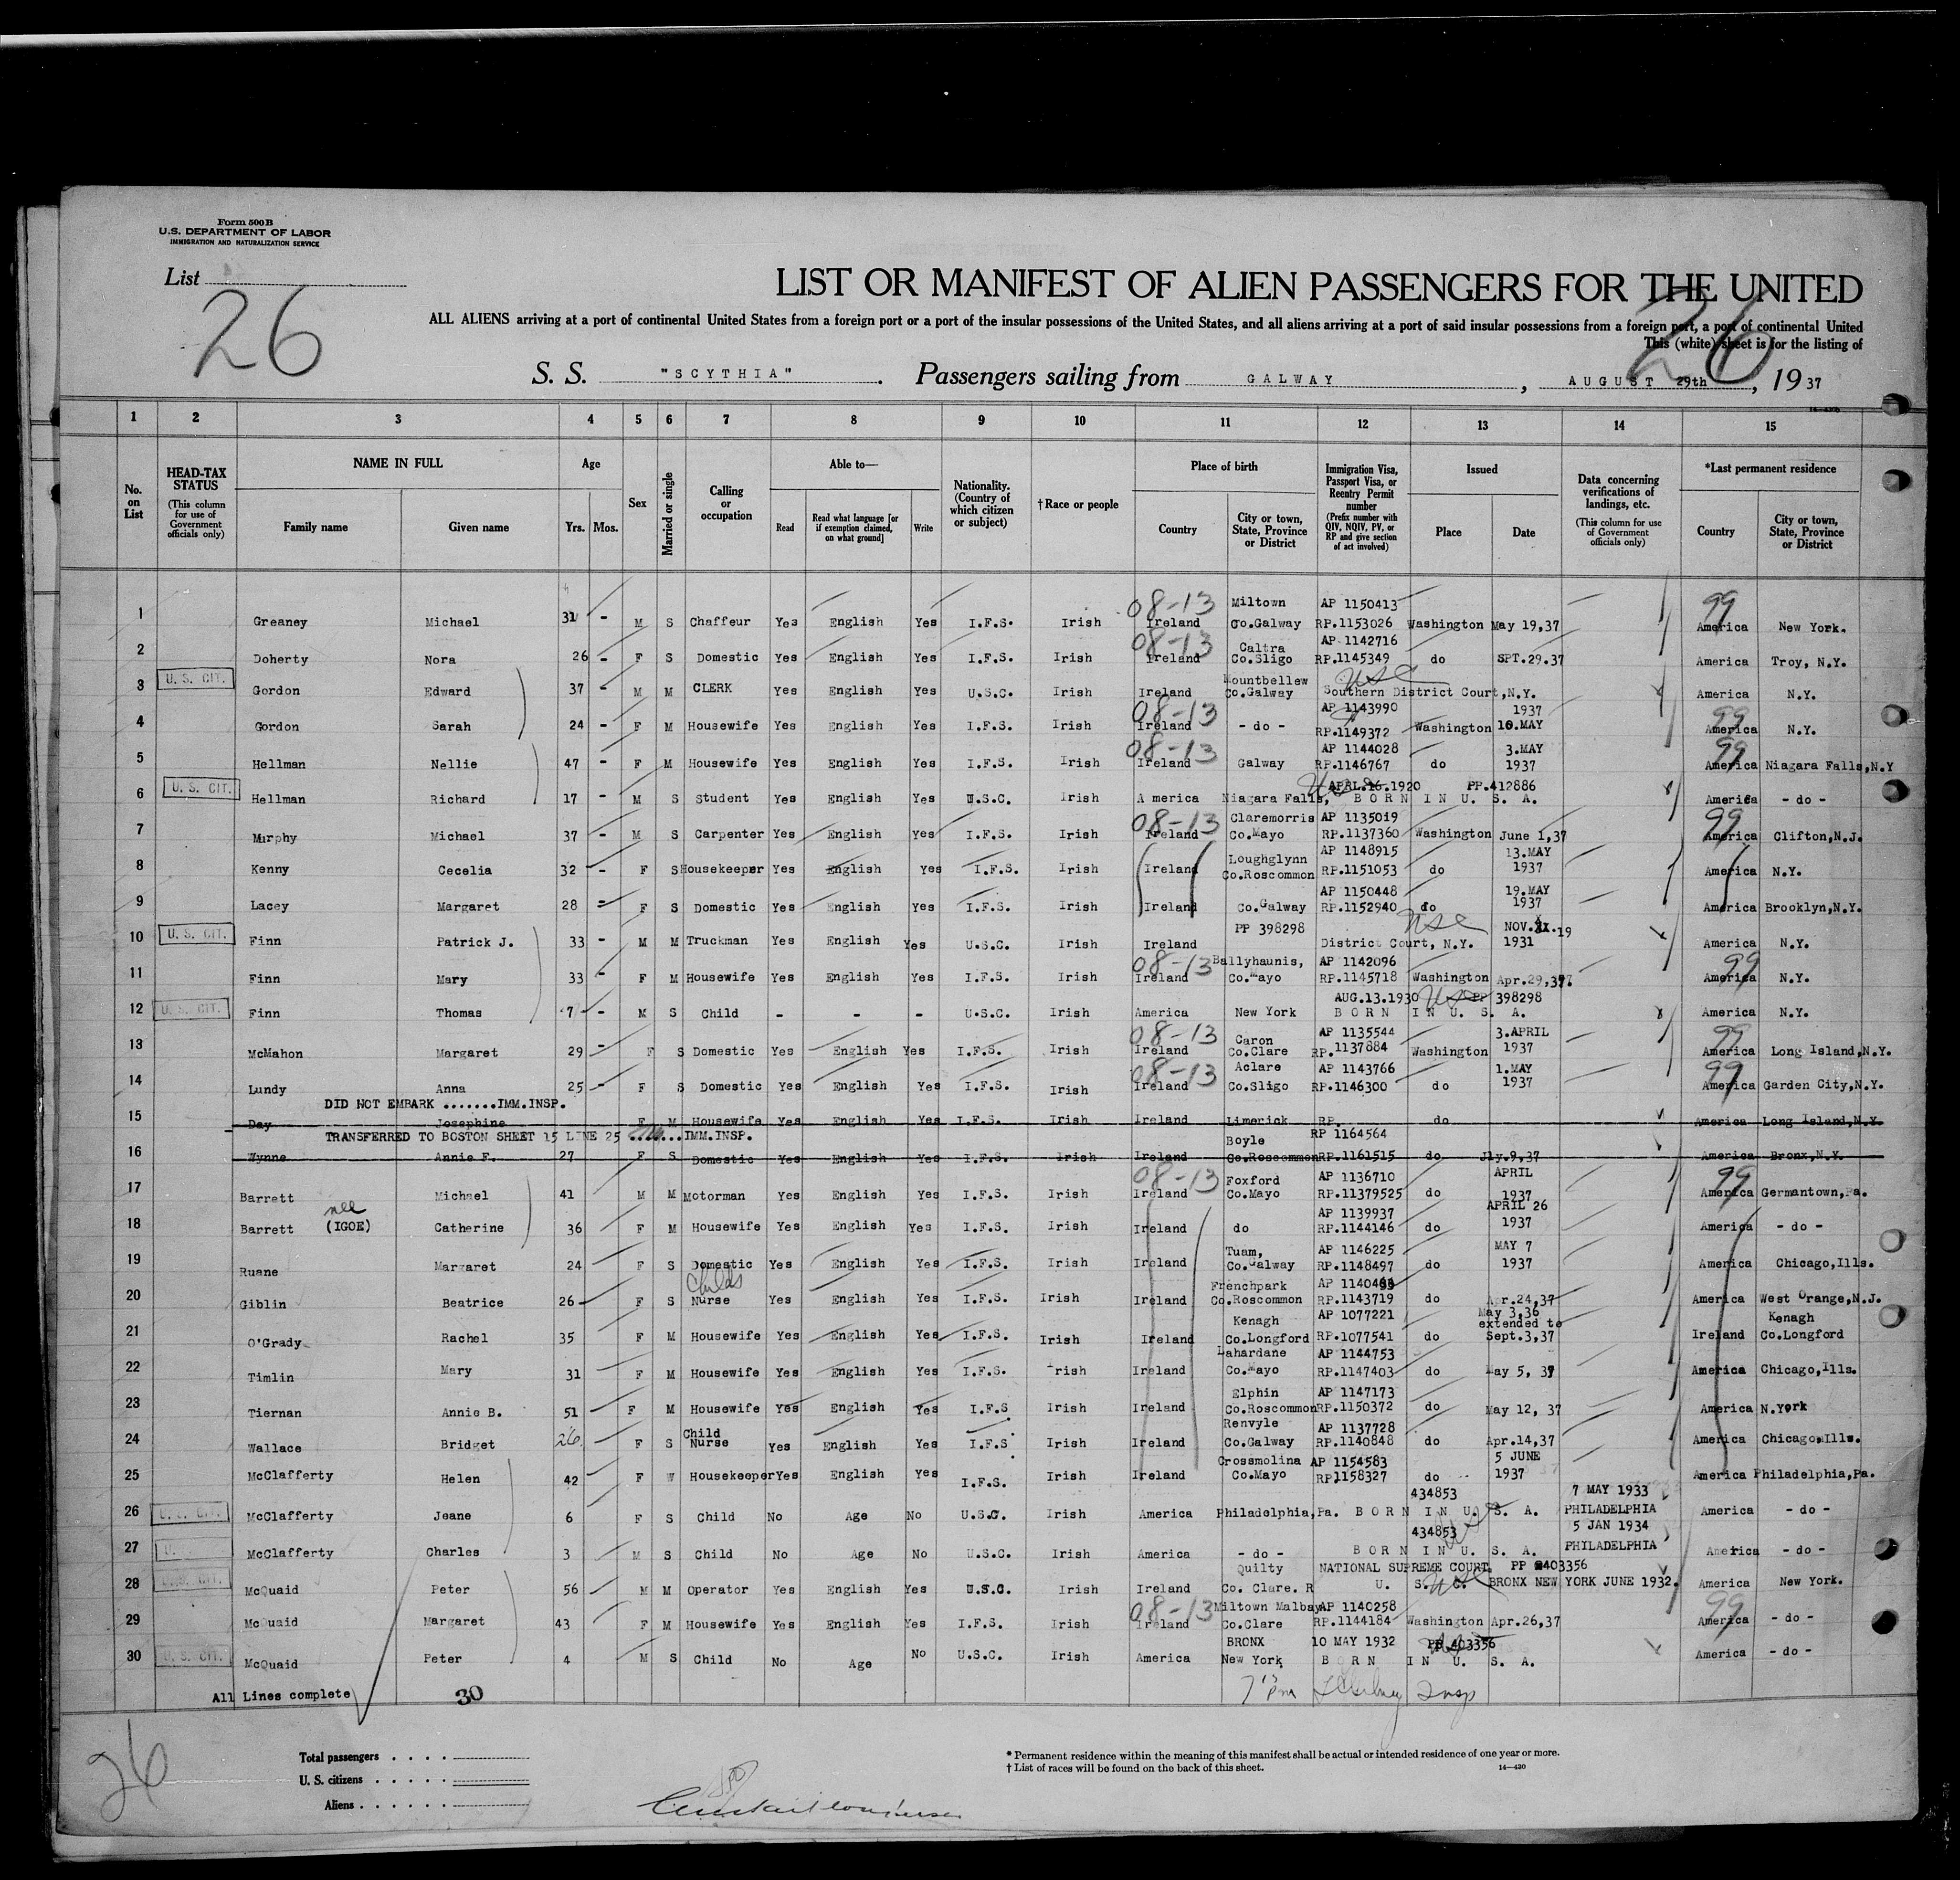 Form 500 B
U.S. DEPARTMENT OF LABOR
IMMIGRATION AND NATURALIZATION SERVICE
List
26
26
LIST OR MANIFEST OF ALIEN PASSENGERS FOR THE UNITED
ALL ALIENS arriving at a port of continental United States from a foreign port or a port of the insular possessions of the United States, and all aliens arriving at a port of said insular possessions from a foreign port, a port of continental United
This (white) sheet is for the listing of
S. S. "SCYTHIA". Passengers sailing from GALWAY, AUGUST 29th, 1937
1 2 3 4 5 6 7 8 9 10 11 12 13 14 15
No. on List
HEAD-TAX STATUS (This column for use of Government officials only)
NAME IN FULL Family name Given name
Age Yrs. Mos.
Sex
Married or single
Calling or occupation
Able to— Read Read what language [or if exemption claimed, on what ground] Write
Nationality. (Country of which citizen or subject)
† Race or people
Place of birth Country City or town, State, Province or District
Immigration Visa, Passport Visa, or Reentry Permit number (Prefix number with QIV, NQIV, PV, or RP and give section of act involved)
Issued Place Date
Data concerning verifications of landings, etc. (This column for use of Government officials only)
*Last permanent residence Country City or town, State, Province or District
08-13 Miltown AP 1150413 99
1 Greaney Michael 31 - M S Chaffeur Yes English Yes I.F.S. Irish Ireland Co.Galway RP.1153026 Washington May 19,37 America New York.
08-13 Caltra AP 1142716
2 Doherty Nora 26 - F S Domestic Yes English Yes I.F.S. Irish Ireland Co.Sligo RP.1145349 do SPT.29.37 America Troy, N.Y.
U. S. CIT. Mountbellew USC
3 Gordon Edward 37 - M M CLERK Yes English Yes U.S.C. Irish Ireland Co.Galway Southern District Court,N.Y. America N.Y.
08-13 AP 1143990 1937 99
4 Gordon Sarah 24 - F M Housewife Yes English Yes I.F.S. Irish Ireland - do - RP.1149372 Washington 10.MAY America N.Y.
08-13 AP 1144028 3.MAY 99
5 Hellman Nellie 47 - F M Housewife Yes English Yes I.F.S. Irish Ireland Galway RP.1146767 do 1937 America Niagara Falls,N.Y
U. S. CIT. APRL.16.1920 PP.412886
6 Hellman Richard 17 - M S Student Yes English Yes U.S.C. Irish A merica Niagara Falls, BORN IN U. S. A. America - do -
08-13 Claremorris AP 1135019 99
7 Murphy Michael 37 - M S Carpenter Yes English Yes I.F.S. Irish Ireland Co.Mayo RP.1137360 Washington June 1,37 America Clifton,N.J.
Loughglynn AP 1148915 13.MAY
8 Kenny Cecelia 32 - F S Housekeeper Yes English Yes I.F.S. Irish Ireland Co.Roscommon RP.1151053 do 1937 America N.Y.
AP 1150448 19.MAY
9 Lacey Margaret 28 - F S Domestic Yes English Yes I.F.S. Irish Ireland Co.Galway RP.1152940 do 1937 America Brooklyn,N.Y.
U. S. CIT. PP 398298 USC NOV. 19
10 Finn Patrick J. 33 - M M Truckman Yes English Yes U.S.C. Irish Ireland District Court, N.Y. 1931 America N.Y.
08-13 Ballyhaunis, AP 1142096 99
11 Finn Mary 33 - F M Housewife Yes English Yes I.F.S. Irish Ireland Co.Mayo RP.1145718 Washington Apr.29,37. America N.Y.
U. S. CIT. AUG.13.1930 USC PP 398298
12 Finn Thomas 7 - M S Child - - - U.S.C. Irish America New York BORN IN U. S. A. America N.Y.
08-13 Caron AP 1135544 3.APRIL 99
13 McMahon Margaret 29 - F S Domestic Yes English Yes I.F.S. Irish Ireland Co.Clare RP.1137884 Washington 1937 America Long Island,N.Y.
08-13 Aclare AP 1143766 1.MAY 99
14 Lundy Anna 25 - F S Domestic Yes English Yes I.F.S. Irish Ireland Co.Sligo RP.1146300 do 1937 America Garden City,N.Y.
DID NOT EMBARK .......IMM.INSP.
15 Day Josephine F M Housewife Yes English Yes I.F.S. Irish Ireland Limerick RP. do America Long Island,N.Y.
TRANSFERRED TO BOSTON SHEET 15 LINE 25 .......IMM.INSP. Boyle RP 1164564
16 Wynne Annie F. 27 F S Domestic Yes English Yes I.F.S. Irish Ireland Co.Roscommon RP.1161515 do Jly.9,37 America Bronx,N.Y.
08-13 Foxford AP 1136710 APRIL 99
17 Barrett Michael 41 M M Motorman Yes English Yes I.F.S. Irish Ireland Co.Mayo RP.11379525 do 1937 America Germantown,Pa.
nee AP 1139937 APRIL 26
18 Barrett (IGOE) Catherine 36 F M Housewife Yes English Yes I.F.S. Irish Ireland do RP.1144146 do 1937 America - do -
Tuam, AP 1146225 MAY 7
19 Ruane Margaret 24 F S Domestic Yes English Yes I.F.S. Irish Ireland Co.Galway RP.1148497 do 1937 America Chicago,Ills.
Childs Frenchpark
20 Giblin Beatrice 26 F S Nurse Yes English Yes I.F.S. Irish Ireland Co.Roscommon RP.1143719 do Apr.24,37 America West Orange,N.J.
Kenagh AP 1077221 May 3,36 extended to Kenagh
21 O'Grady Rachel 35 F M Housewife Yes English Yes I.F.S. Irish Ireland Co.Longford RP.1077541 do Sept.3,37 Ireland Co.Longford
Lahardane AP 1144753
22 Timlin Mary 31 F M Housewife Yes English Yes I.F.S. Irish Ireland Co.Mayo RP.1147403 do May 5, 37 America Chicago,Ills.
Elphin AP 1147173
23 Tiernan Annie B. 51 F M Housewife Yes English Yes I.F.S Irish Ireland Co.Roscommon RP.1150372 do May 12, 37 America N.York
Child Renvyle AP 1137728
24 Wallace Bridget 26 F S Nurse Yes English Yes I.F.S Irish Ireland Co.Galway RP.1140848 do Apr.14,37 America Chicago,Ills.
Crossmolina AP 1154583 5 JUNE
25 McClafferty Helen 42 F W Housekeeper Yes English Yes I.F.S. Irish Ireland Co.Mayo RP.1158327 do 1937 America Philadelphia,Pa.
434853 7 MAY 1933
26 McClafferty Jeane 6 F S Child No Age No U.S.C. Irish America Philadelphia,Pa. BORN IN U. S. A. PHILADELPHIA America - do -
434853 5 JAN 1934
27 McClafferty Charles 3 M S Child No Age No U.S.C. Irish America - do - BORN IN U. S. A. PHILADELPHIA America - do -
U. S. CIT. Quilty NATIONAL SUPREME COURT. PP 403356
28 McQuaid Peter 56 M M Operator Yes English Yes U.S.C. Irish Ireland Co. Clare. R U. S. C. BRONX NEW YORK JUNE 1932. America New York.
08-13 Miltown Malbay AP 1140258 99
29 McQuaid Margaret 43 F M Housewife Yes English Yes I.F.S. Irish Ireland Co.Clare RP.1144184 Washington Apr.26,37 America - do -
U. S. CIT. BRONX 10 MAY 1932 PP 403356
30 McQuaid Peter 4 M S Child No Age No U.S.C. Irish America New York BORN IN U. S. A. America - do -
All Lines complete 30
Insp
26
Total passengers
U. S. citizens
Aliens
* Permanent residence within the meaning of this manifest shall be actual or intended residence of one year or more.
† List of races will be found on the back of this sheet. 14—420